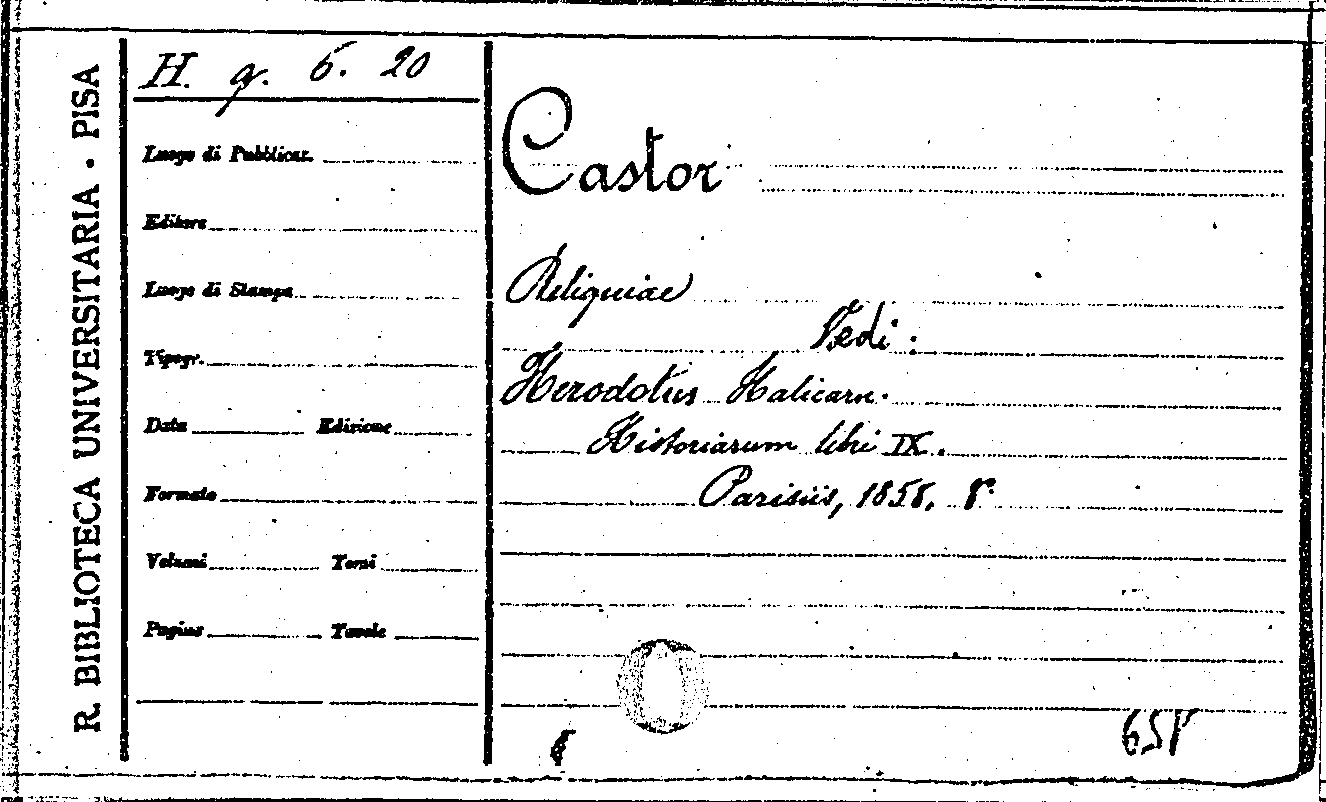 R. BIBLIOTECA UNIVERSITARIA · PISA
H. q. 6. 20
Luogo di Pubblicaz.
Editore
Luogo di Stampa
Tipogr.
Data Edizione
Formato
Volumi Tomi
Pagine Tavole
Castor
Reliquiae
Vedi:
Herodotus Halicarn.
Historiarum libri IX.
Parisiis, 1858. 8°
658